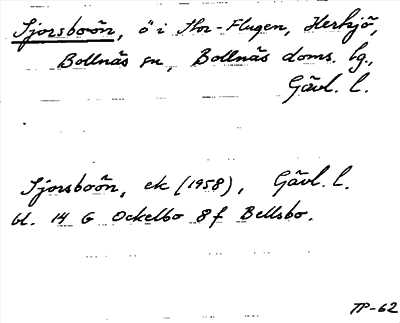 Sjorsboön, ö i Stor-Flugen, Herksjö,
Bollnäs sn, Bollnäs doms. hg.,
Gävl. l.
Sjorsboön, ek (1958), Gävl. l.
bl. 14 G Ockelbo 8 f Bellsbo.
TP-62